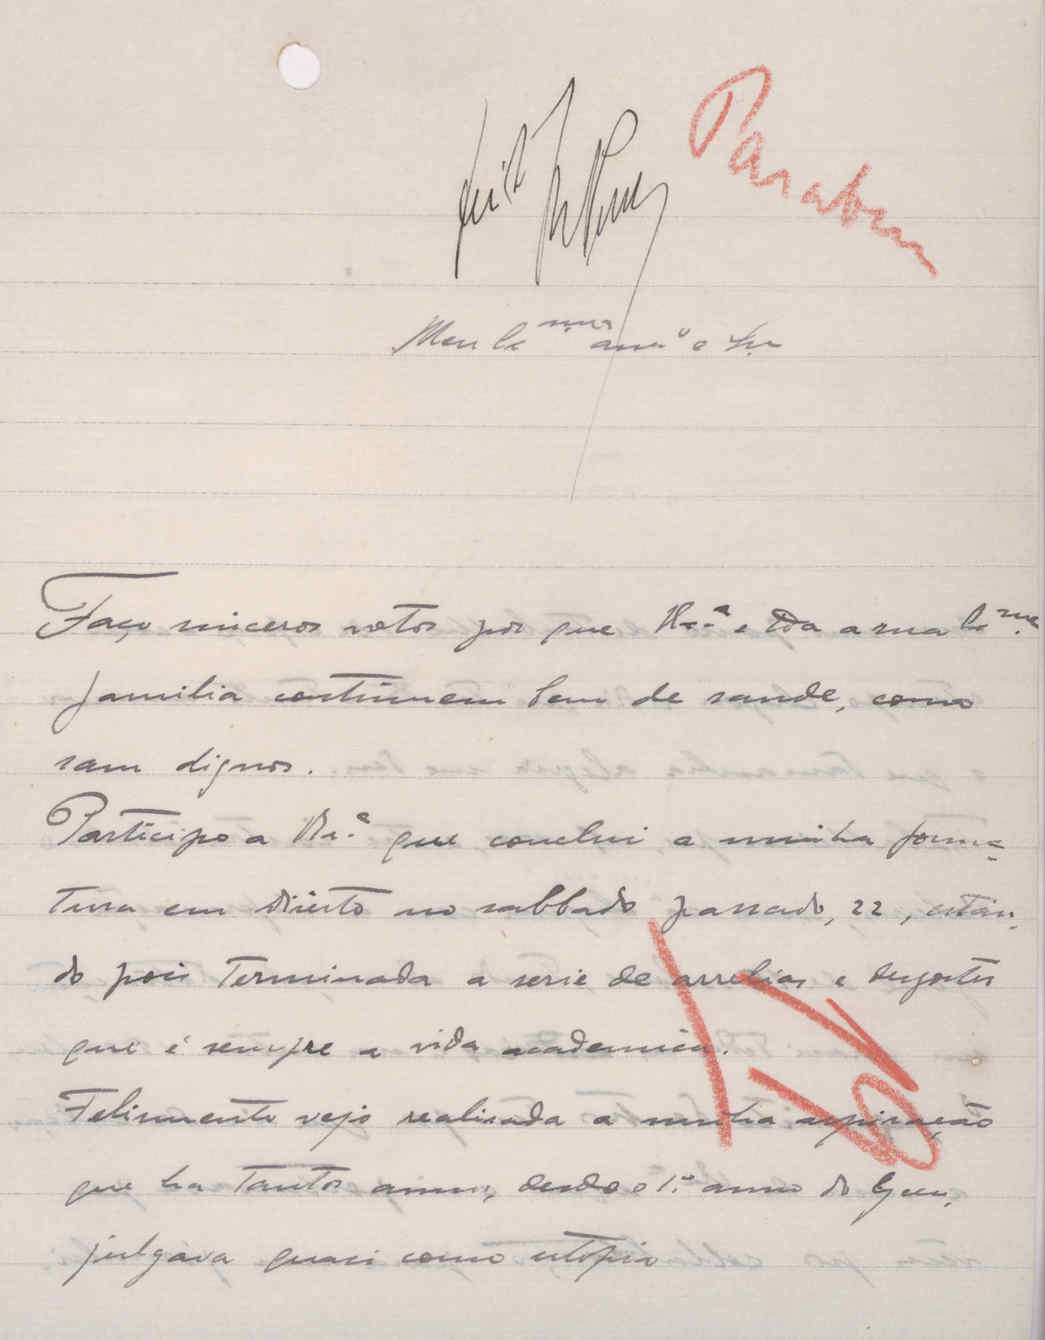 Parabem
Meu Ex.mo am.o e Sr.
Faço sinceros votos por que V. Ex.a e tôda a sua Ex.ma
familia continuem bem de saude, como
sam dignos.
Participo a V. Ex.a que conclui a minha forma-
tura em Direito no sabbado passado, 22, estan-
do pois terminada a serie de arrelias e desgostos
que é sempre a vida academica.
Felismente vejo realisada a minha aspiração
que ha tantos annos, desde o 1.o anno do
julgava quasi como utopia